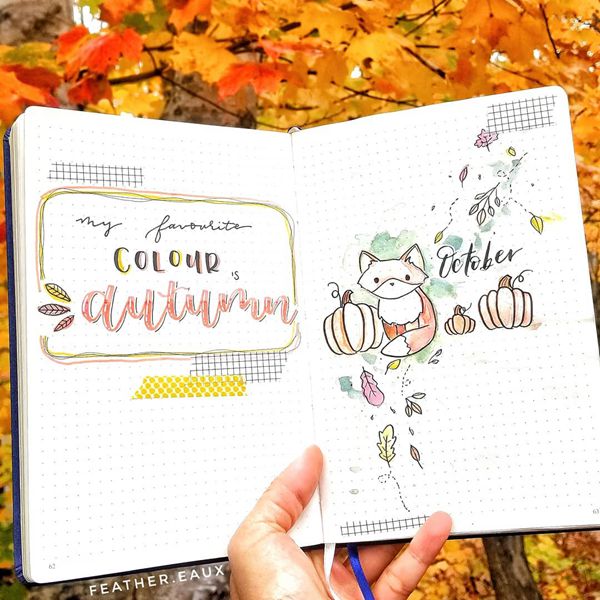 my favourite
COLOUR IS
autumn
October
62
63
FEATHER.EAUX